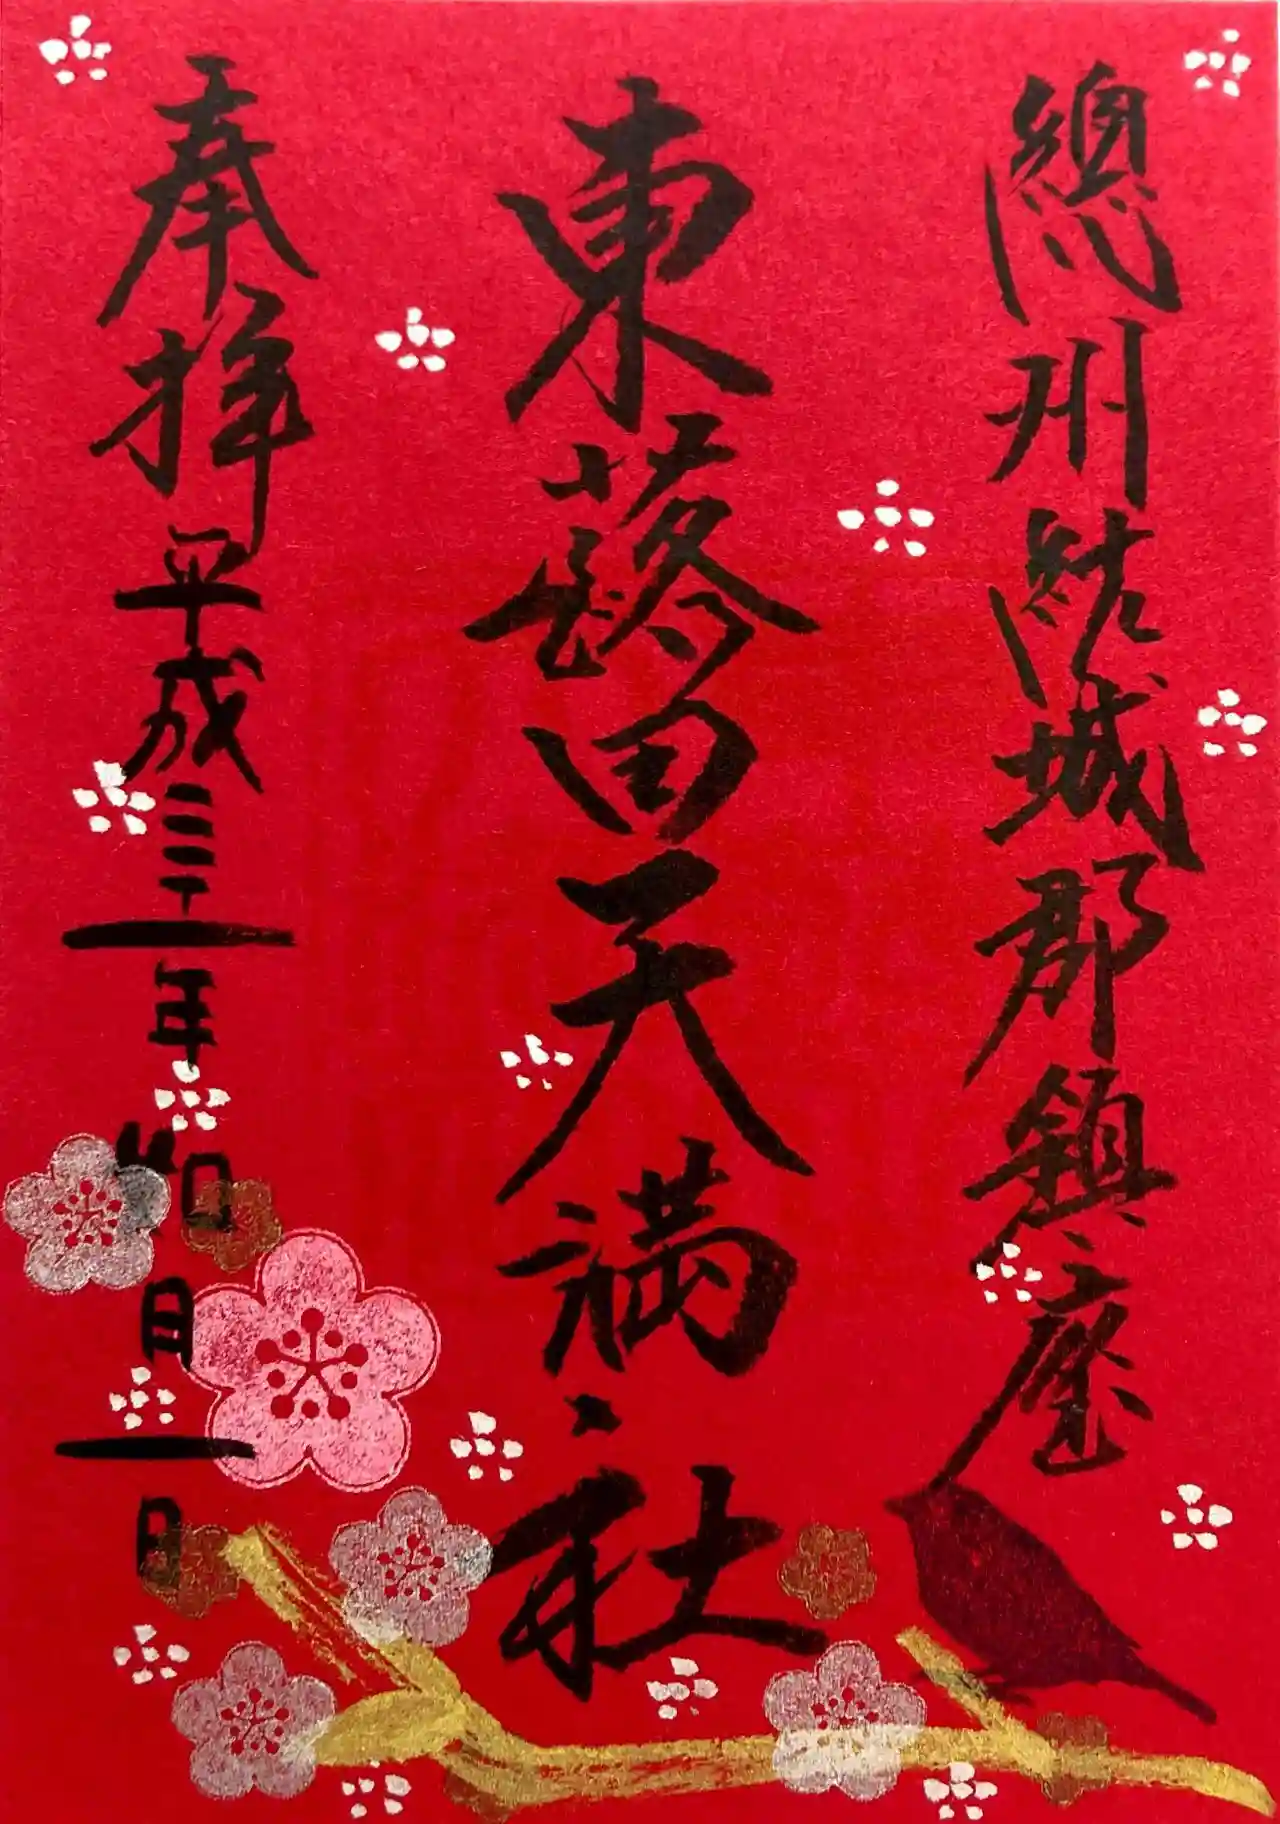 總州結城郡鎮座
東蕗田天満社
奉拝
平成三十一年四月一日